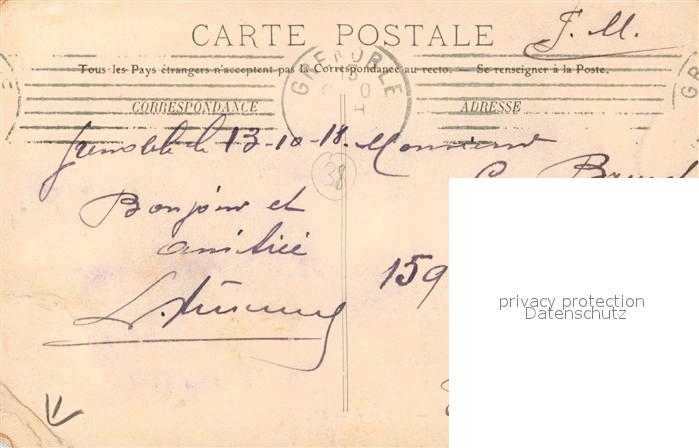 F. M.
CARTE POSTALE
GRENOBLE
Tous les Pays étrangers n'acceptent pas la Correspondance au recto. — Se renseigner à la Poste.
CORRESPONDANCE
ADRESSE
Grenoble le 13-10-18.
Monsieur
38
Bonjour et
amitié
159
privacy protection
Datenschutz